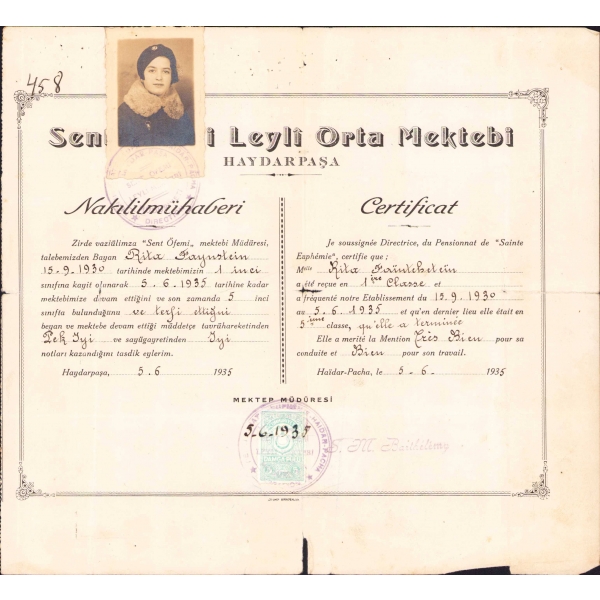 458
Sent i Leylî Orta Mektebi
HAYDARPAŞA
Nakilîlmühaberi
Zirde vaziülimza "Sent Öfemi„ mektebi Müdüresi,
talebemizden Bayan Rita Faynştein
15-9-1930 tarihinde mektebimizin 1 inci
sınıfına kayit olunarak 5-6-1935 tarihine kadar
mektebimize devam ettiğini ve son zamanda 5 inci
sınıfta bulunduğunu ve terfi ettiğini
beyan ve mektebe devam ettiği müddetçe tavrühareketinden
Pek Iyi ve sayügayretinden Iyi
notları kazandığını tasdik eylerim.
Haydarpaşa, 5.6 1935
Certificat
Je soussignée Directrice, du Pensionnat de "Sainte
Euphémie, certifie que :
Mlle Rita
a été reçue en 1ère Classe et
a fréquenté notre Etablissement du 15.9.1930
au 5.6.1935 et qu'en dernier lieu elle était en
5ième classe, qu'elle a terminée
Elle a merité la Mention Très Bien pour sa
conduite et Bien pour son travail.
Haïdar-Pacha, le 5-6- 1935
MEKTEP MÜDÜRESİ
5.6.1935
HAIDAR-PACHA
M. Barthélemy